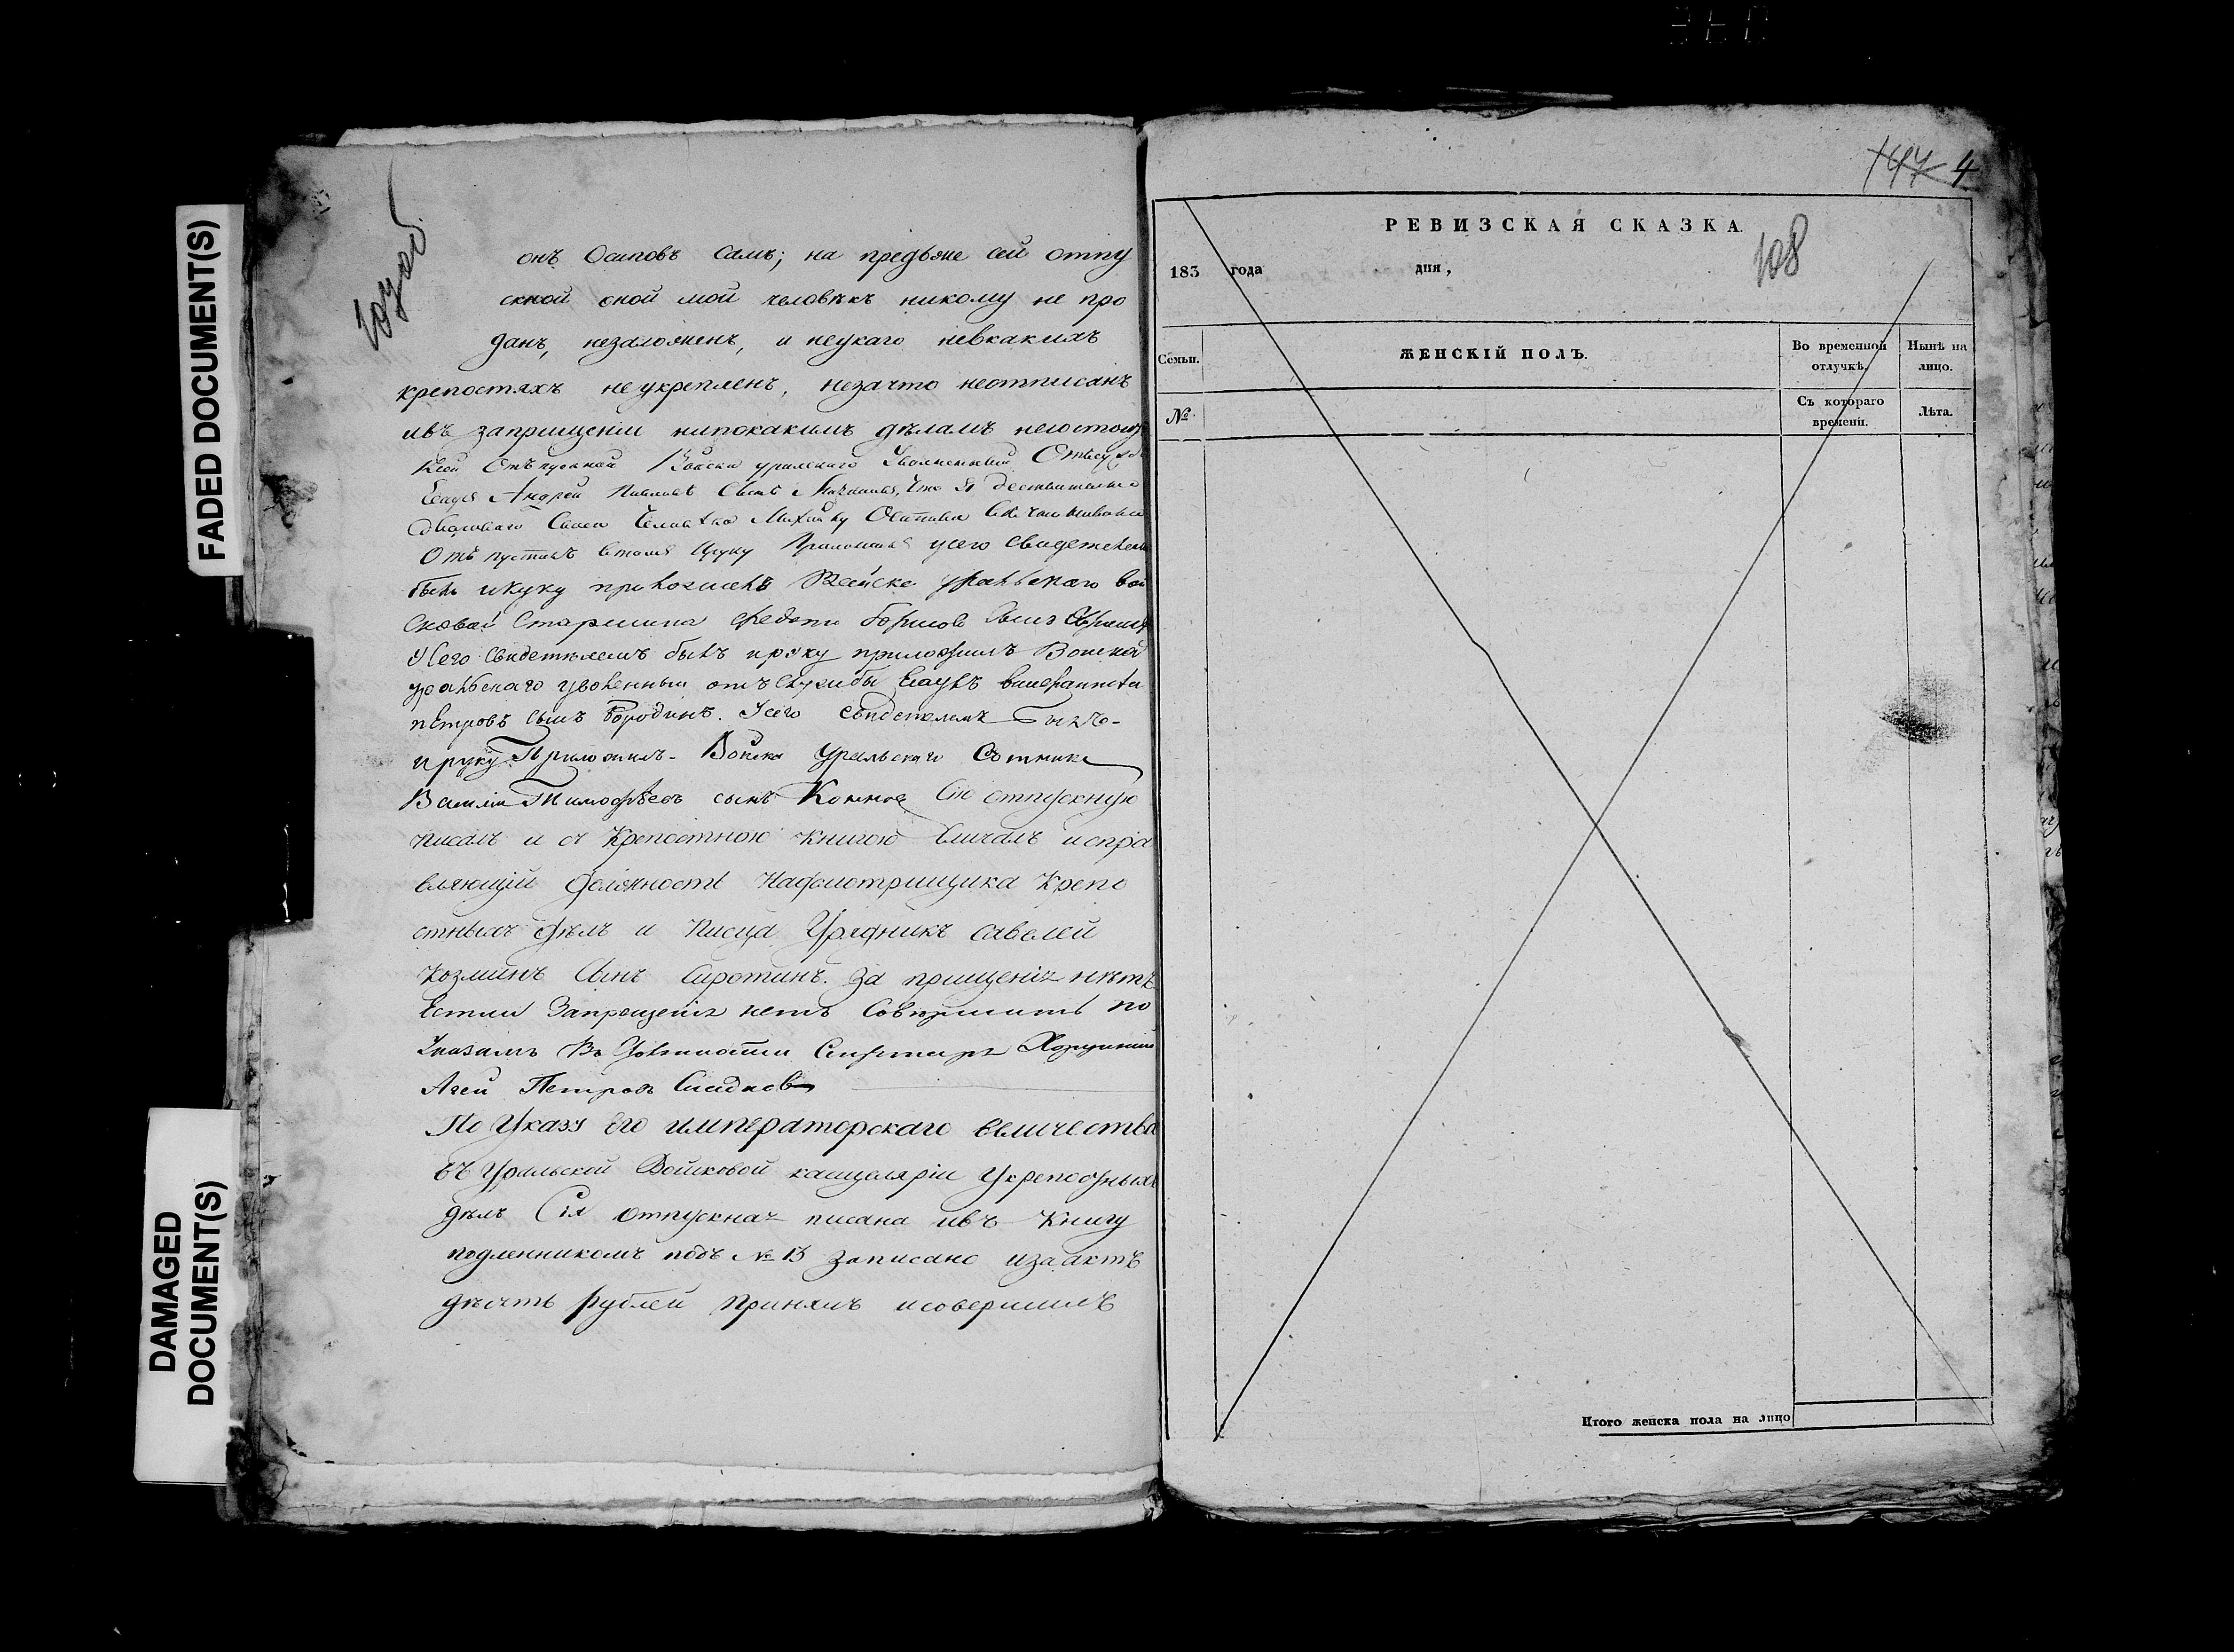 FADED DOCUMENT(S)
DAMAGED
DOCUMENT(S)
онъ Осиповъ самъ; на предъяне сей отпу
скной оной мой человѣкъ никому не про
данъ, незаложенъ, и неукаго невкакихъ
крепостяхъ неукрепленъ, незачто неотписанъ
ивъ заприщении нипокакимъ дѣламъ несостоитъ
Ксей Отпускной Войска уралскаго Уволненный
Есаулъ Андрей сынъ что я
своего Человѣка Осипова
Отпустилъ втомъ и руку Приложилъ усего свидетелемъ
былъ ируку приложилъ Вайска уральскаго вой
сковай Старшина Федотъ борисов сынъ
Усего свидетелемъ былъ ируку приложилъ Войска
уральскаго уволенный отъ службы Есаулъ
пЕтровъ сынъ Бородинъ. Усего свидетелемъ былъ
ируку Приложилъ Войска Уральскаго Сотникъ
Василий Тимофѣевъ сынъ Сію отпускную
писалъ и съ Крепостною книгою сличалъ испра
вляющій должность Надсмотрищика Крепо
стныхъ дѣлъ и Писца Урядникъ савелей
Козминъ Сынъ Сиротинъ. Заприщения нѣтъ
Естли Запрещения нетъ Совершить по
Указамъ Въ должности Секретаря Хорунжий
Агей Петровъ Сладковъ
По Указу Его императорскаго величества
въ Уральской Войсковой канцеляріи Укрепосныхъ
дѣлъ Сія отпускная писана ивъ Книгу
подленникомъ подъ № 13 записано изаактъ
дѣсять рублей принялъ исовершилъ
147 4
РЕВИЗСКАЯ СКАЗКА.
108
183 года дня,
Семьи. ЖЕНСКІЙ ПОЛЪ. Во временной отлучкѣ. Нынѣ на лицо.
№. Съ котораго времени. Лѣта.
Итого женска пола на лицо